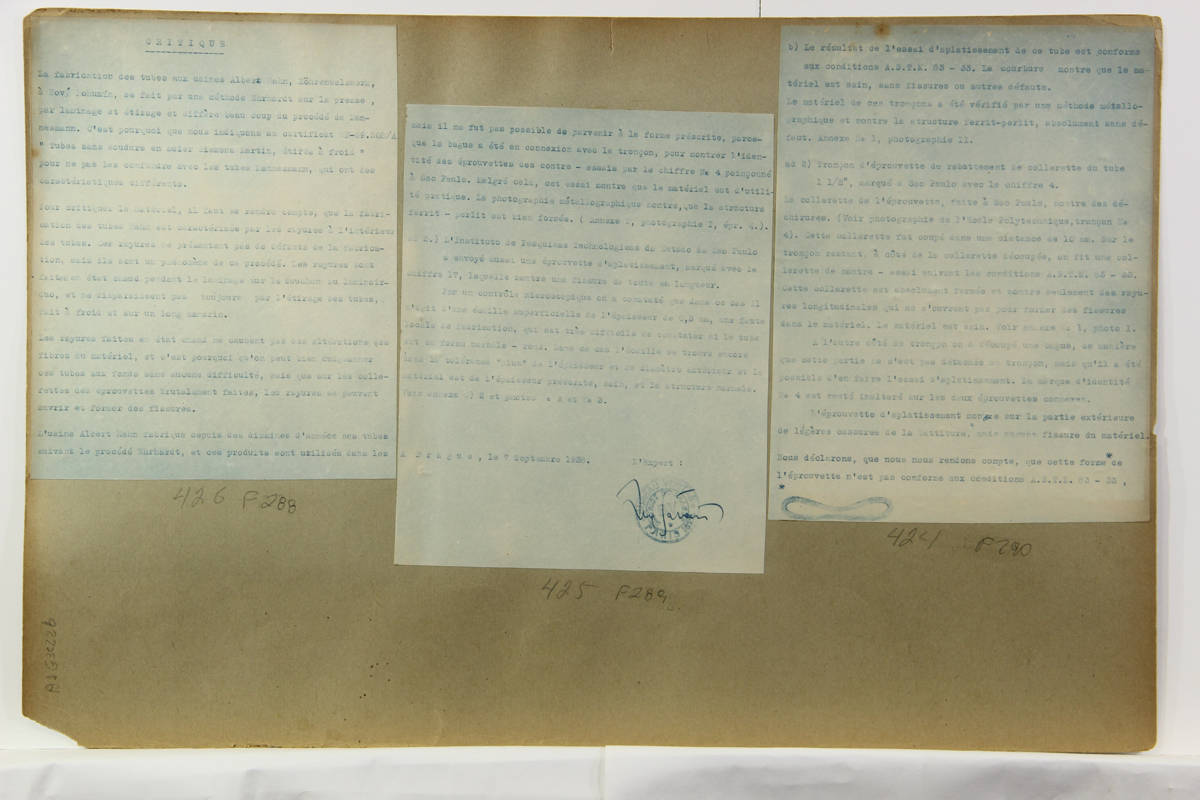 CRITIQUE
La fabrication des tubes aux usines Albert Hahn, Röhrenwalzwerk,
à Nový Bohumín, se fait par une méthode Ehrhardt sur la presse,
par laminage et étirage et diffère beaucoup du procédé de Man-
nesmann. C'est pourquoi que nous indiquons au certificat
" Tubes sans soudure en acier Siemens Martin, étirés à froid "
pour ne pas les confondre avec les tubes Mannesmann, qui ont des
caractéristiques différents.
Pour critiquer le matériel, il faut se rendre compte, que la fabri-
cation des tubes Hahn est caractérisée par les rayures à l'intérieur
des tubes. Ces rayures ne présentent pas de défauts de la fabrica-
tion, mais ils sont un phénomène de ce procédé. Les rayures sont
faites en état chaud pendant le laminage sur le bouchon au laminoir-
duo, et ne disparaissent pas toujours par l'étirage des tubes,
fait à froid et sur un long mandrin.
Les rayures faites en état chaud ne causent pas des altérations des
fibres du matériel, et c'est pourquoi qu'on peut bien
ces tubes aux fonds sans aucune difficulté, mais que sur les colle-
rettes des éprouvettes brutalement faites, les rayures se peuvent
ouvrir et former des fissures.
L'usine Albert Hahn fabrique depuis des dizaines d'années nos tubes
suivant le procédé Ehrhardt, et ces produits sont utilisés dans les
426 F288
mais il ne fut pas possible de parvenir à la forme préscrite, parce-
que la bague a été en connexion avec le tronçon, pour montrer l'iden-
tité des éprouvettes des contre - essais par le chiffre № 4 poinçonné
à Sao Paulo. Malgré cela, cet essai montre que le matériel est d'utili-
té pratique. La photographie métallographique montre, que la structure
ferrit - perlit est bien formée. ( Annexe 1, photographie I, épr. 4.).
ad 2.) L'Instituto de Pesquisas Technologicas do Estado de Sao Paulo
a envoyé aussi une éprouvette d'aplatissement, marqué avec le
chiffre 17, laquelle montre une fissure de toute sa longueur.
Par un contrôle microscopique on a constaté que dans ce cas il
s'agit d'une écaille superficielle de l'épaisseur de 0,5 mm, une faute
locale de fabrication, qui est très difficile de constater si le tube
est en forme normale - rond. Dans ce cas l'écaille se trouve encore
dans la tolérance "plus" de l'épaisseur et du diamètre extérieur et le
matériel est de l'épaisseur préscrite, sain, et la structure normale.
Voir annexe 2 et photos 2 et № 3.
A Prague, le 7 Septembre 1938. L'Expert :
425 F289
b) Le résultat de l'essai d'aplatissement de ce tube est conforme
aux conditions A.S.T.M. 83 - 33. La courbure montre que le ma-
tériel est sain, sans fissures ou autres défauts.
Le matériel de ces tronçons a été vérifié par une méthode métallo-
graphique et montre la structure ferrit-perlit, absolument sans dé-
faut. Annexe № 1, photographie II.
ad 2) Tronçon d'éprouvette de rabattement de collerette du tube
1 1/2", marqué a Sao Paulo avec le chiffre 4.
La collerette de l'éprouvette, faite à Sao Paulo, montre des dé-
chirures. (Voir photographie de l'Ecole Polytechnique, tronçon №
4). Cette collerette fut coupé dans une distance de 10 mm. Sur le
tronçon restant, à côté de la collerette découpée, on fit une col-
lerette de contre - essai suivant les conditions A.S.T.M. 83 - 33.
Cette collerette est absolument formée et montre seulement des rayu-
res longitudinales qui ne s'ouvrent pas pour former des fissures
dans le matériel. Le matériel est sain. Voir annexe № 1, photo 1.
A l'autre côté du tronçon on a découpé une bague, de manière
que cette partie ne s'est pas détachée du tronçon, mais qu'il a été
possible d'en faire l'essai d'aplatissement. La marque d'identité
№ 4 est resté inaltéré sur les deux éprouvettes connexes.
L'éprouvette d'aplatissement montre sur la partie extérieure
de légères cassures de la battiture, mais aucune fissure du matériel.
Nous déclarons, que nous nous rendons compte, que cette forme de
l'éprouvette n'est pas conforme aux conditions A.S.T.M. 83 - 33,
424 F290